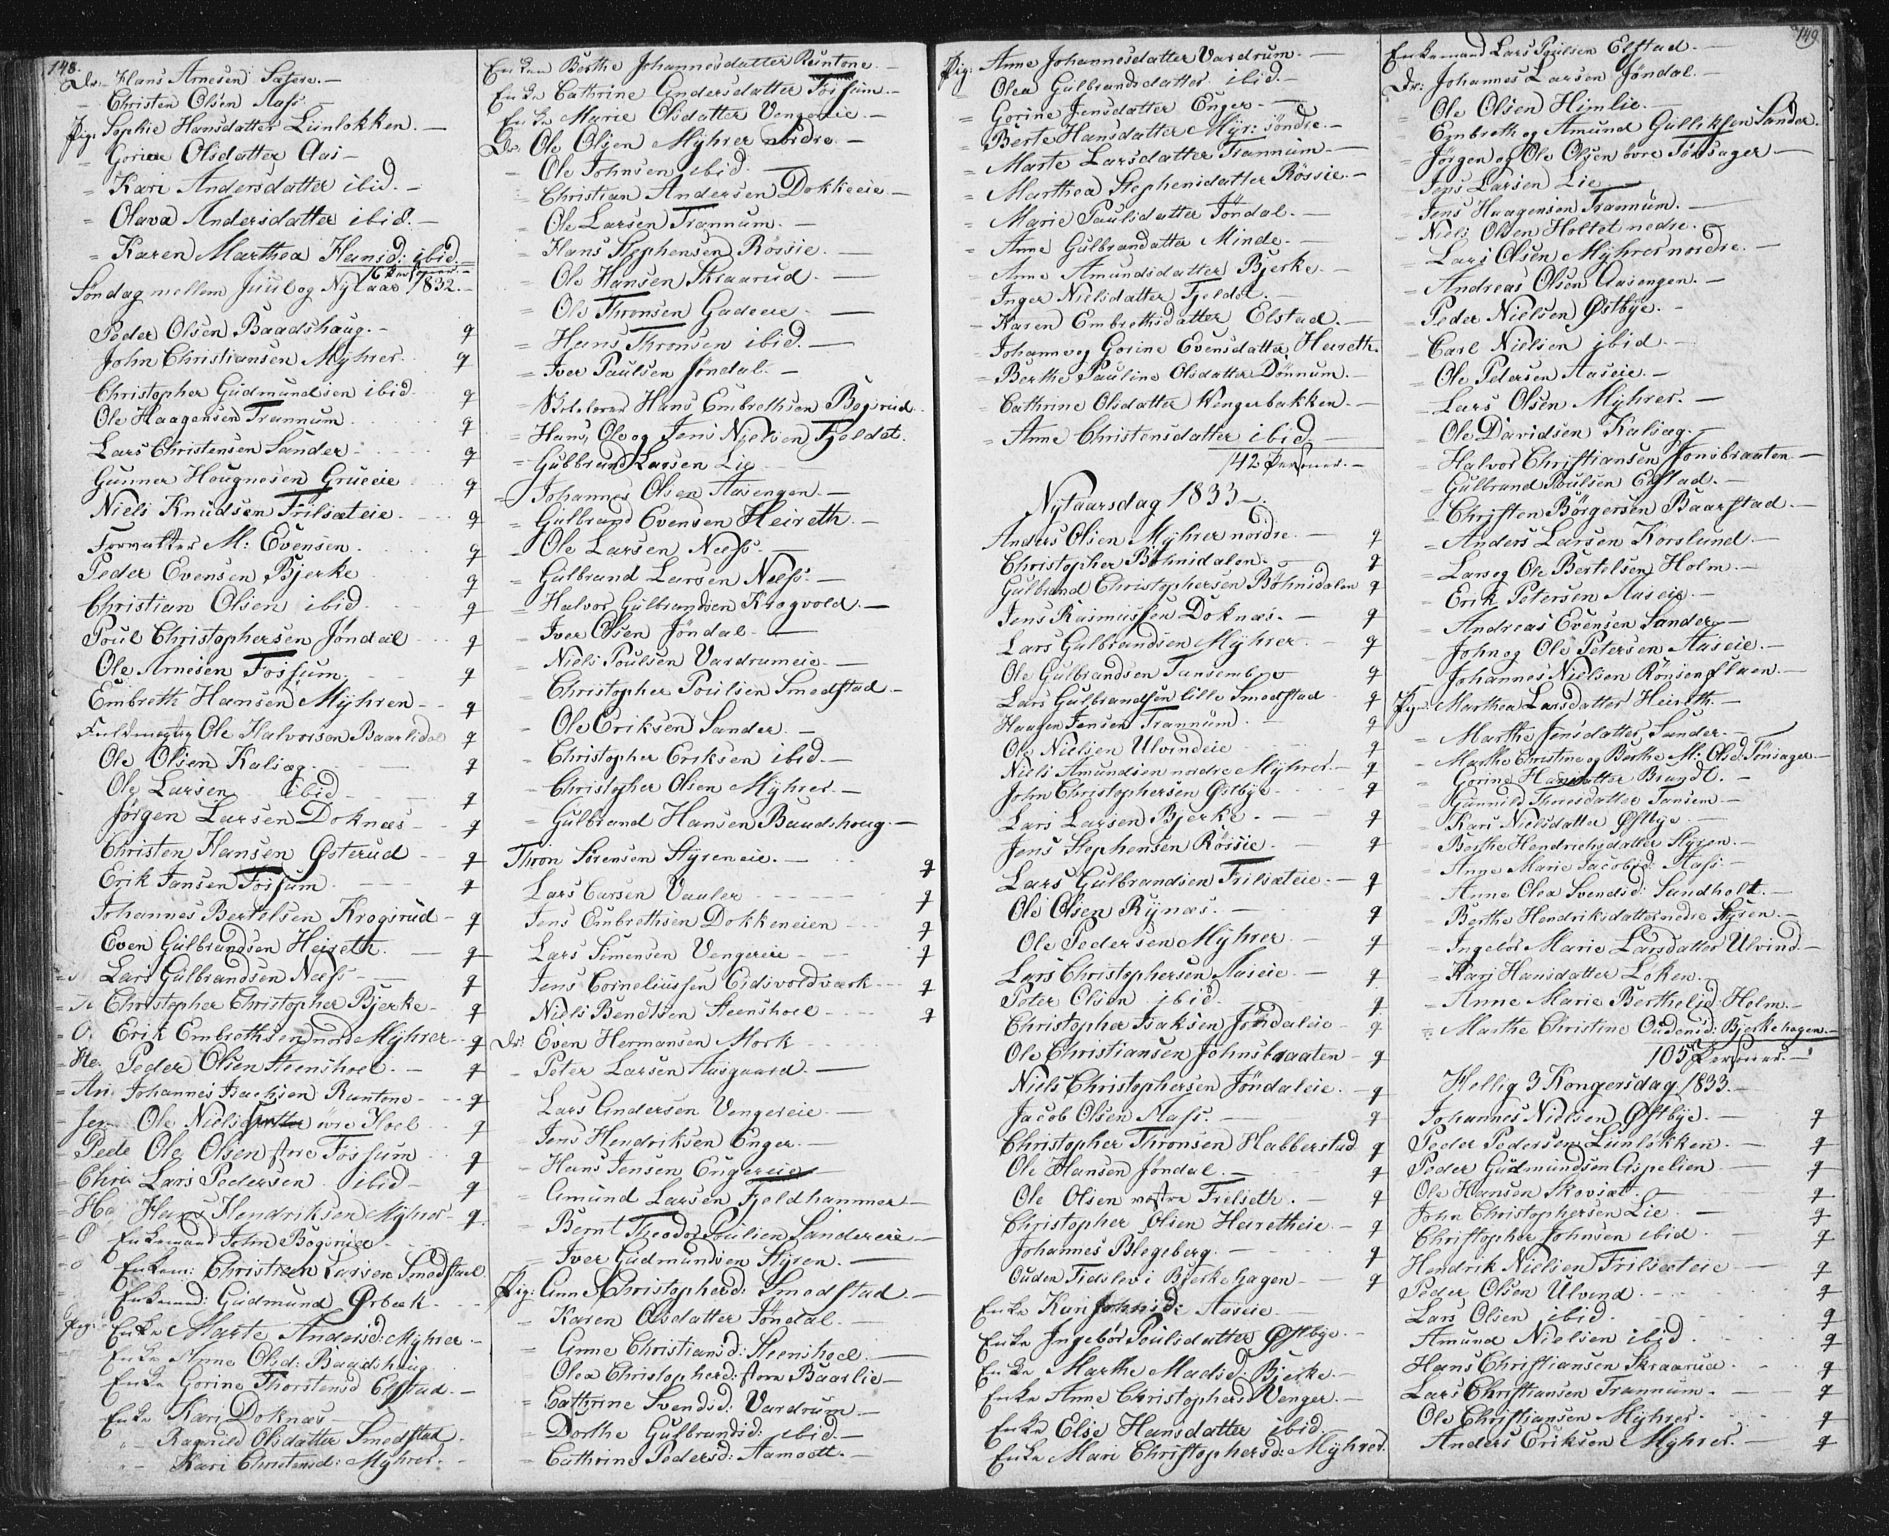 148.
Dr. Hans Arnesen Sætere. —
- Christen Olsen Aass
Pig. Sophie Hansdatter Lünlökken. —
- Gorine Olsdatter Aas —
- Kari Andersdatter ibid. —
- Olava Andersdatter ibid. —
- Karen Marthea Hansd: ibid.
Söndag mellem Juul og Nytaar 1832. —
Peder Olsen Baadshaug. — g
John Christiansen Myhrer. g
Christopher Gudmundsen ibid g
Ole Haagensen Trannum g
Lars Christensen Sander g
Gunner Hougnesen Grueeie g
Niels Knudsen Frilsæteie g
Forvalter M: Evensen g
Peder Evensen Bjerke g
Christian Olsen ibid g
Poul Christophersen Jöndal g
Ole Arnesen Fossum g
Embreth Hansen Myhren g
Fuldmegtig Ole Halvorsen Baarlidal g
Ole Olsen Kalsæg g
Ole Larsen ibid g
Jørgen Larsen Doknæs g
Christen Hansen Østerud g
Erik Jansen Fossum g
Johannes Bertelsen Krogsrud g
Even Gulbrandsen Heireth g
Lars Gulbrandsen Næss g
Christopher Christopher Bjerke g
Erik Embrethsen nord Myhrer g
Peder Olsen Steenshoel. — g
Johannes Isachsen Runtone g
Ole Niels övre Hoel g
Ole Olsen store Fossum g
Lars Pedersen ibid g
Hans Hendriksen Myhrer g
Enkemand John Bogerüeie
Enkem: Christian Larsen Smedstad
Enkemand: Gudmund Ørbæk
Enke Marte Andersd: Myhrer —
Enke Anne Olsd: Baadshaug
Enke Gorine Thorstensd Elstad. —
Enke Kari Doknæs —
- Ragnild Olsdatter Smedstad.
- Kari Christensd: Myhrer. —
Enken Berthe Johannesdatter Runtone. —
Enke Cathrine Andersdatter Fossum. —
Enke Marie Olsdatter Vengereie. —
Dr: Ole Olsen Myhrer nordre. —
- Ole Johnsen ibid. —
- Christian Andersen Dokkeeie —
- Ole Larsen Trannum. —
- Hans Stephensen Rössie. —
- Ole Hansen Skraarud —
- Ole Thronsen Gadeeie. —
- Hans Thronsen ibid. —
- Iver Paulsen Jöndal. —
- Skolelærer Hans Embrethsen Bogerud.
- Hans, Ole og Jens Nielsen Fjeldet.
- Gulbrand Larsen Lie
- Johannes Olsen Aasengen. —
- Gulbrand Evensen Heireth. —
- Ole Larsen Næss. —
- Gulbrand Larsen Næss. —
- Halvor Gulbrandsen Krogvold. —
- Iver Olsen Jöndal. —
- Niels Poulsen Vardrumeie. —
- Christopher Poulsen Smedstad. —
- Ole Eriksen Sander. —
- Christopher Eriksen ibid. —
- Christopher Olsen Myhrer. —
- Gulbrand Hansen Baadshoug. —
Thron Sörensen Styreneie. — g
Lars Larsen Vaaler g
Jens Embrethsen Dokkeneien g
Lars Simensen Vengereie g
Jens Corneliussen Eidsvoldværk g
Niels Bendtsen Steenshoel g
Dr: Even Hermansen Mork
- Peter Larsen Aasgaard. —
- Lars Andersen Vengereie. —
- Jens Hendriksen Enger. —
- Hans Jensen Engereie
- Amund Larsen Fjeldhammer —
- Bernt Theodor Poulsen Sandereie. —
- Iver Gudmundsen Styren. —
Pig: Anne Christophersd: Smedstad. —
- Karen Olsdatter Jöndal. —
- Anne Christiansd: Steenshoel. —
- Olea Christophersd: store Baarlie —
- Cathrine Svendsd: Vardrum. —
- Dorthe Gulbrandsd: ibid. —
- Cathrine Pedersd: Aamodt. —
Pig: Anne Johannesdatter Vardrum. —
- Olea Gulbrandsdatter ibid. —
- Gorine Jensdatter Enger. —
- Berte Hansdatter Myr: söndre. —
- Marte Larsdatter Trannum —
- Marthea Stephensdatter Rössie. —
- Marie Paulsdatter Jöndal. —
- Anne Gulbrandatter Minde. —
- Anne Amundsdatter Bjerke. —
- Inger Nielsdatter Fjeldet. —
- Karen Embrethsdatter Elstad. —
- Johanne og Gorine Evensdatter Heireth.
- Berthe Pauline Olsdatter Dönnum. —
- Cathrine Olsdatter Vengerbakken. —
- Anne Christensdatter ibid. —
142 Personer. —
Nytaarsdag 1833 —.
Anders Olsen Myhrer nordre. — g
Christopher Böhnsdalen. — g
Gulbrand Christophersen Böhnsdalen g
Jens Rasmussen Doknæs. — g
Lars Gulbrandsen Myhrer. g
Ole Gulbrandsen g
Lars Gulbrandsen lille Smedstad g
Haagen Jensen Trannum. g
Ole Nielsen Ulvindeie g
Niels Amundsen nordre Myhrer. — g
John Christophersen Østbye g
Lars Larsen Bjerke. g
Jens Stephensen Rössie. — g
Lars Gulbrandsen Frilsæteie. — g
Ole Olsen Rynæs. — g
Ole Pedersen Myhrer — g
Lars Christophersen Aaseie. — g
Peter Olsen ibid g
Christopher Isaksen Jöndaleie — g
Ole Christiansen Johnsbraaten — g
Niels Christophersen Jöndaleie. — g
Jacob Olsen Aass. — g
Christopher Thronsen Habberstad g
Ole Hansen Jöndal. — g
Ole Olsen vestre Frelseth. — g
Christopher Olsen Heiretheie. — g
Johannes Blegeberg. — g
Ouden Tidslev i Bjerkehagen — g
Enke Kari Johnsd: Aaseie. —
Enke Ingebör Poulsdatter Østbye. —
Enke Marthe Madsd: Bjerke. —
Enke Anne Christophersd Venger. —
Enke Else Hansdatter ibid.
Enke Mari Christophersd: Myhrer.
149
Enkemand Lars Poulsen Elstad. —
Dr: Johannes Larsen Jöndal. —
- Ole Olsen Himlie. —
- Embreth og Amund Gulliksen Sander.
- Jörgen og Ole Olsen övre Tönsager —
- Jens Larsen Lie —
- Jens Haagensen Trannum. —
- Niels Olsen Holtet nedre. —
- Lars Olsen Myhrer nordre. —
- Andreas Olsen Aasengen. —
- Peder Nielsen Østbye. —
- Carl Nielsen ibid —
- Ole Petersen Aaseie. —
- Lars Olsen Myhrer. —
- Ole Davidsen Kalsæg. —
- Halvor Christiansen Jonsbraaten —
- Gulbrand Poulsen Elstad. —
- Christen Börgersen Baarstad. —
- Anders Larsen Korslund. —
- Lars og Ole Bertelsen Holm. —
- Erik Petersen Aaseie. —
- Andreas Evensen Sander —
- John og Ole Petersen Aaseie. —
- Johannes Nielsen Rönsenfluen. —
Pig: Marthea Larsdatter Heireth. —
- Marthe Jensdatter Sander. —
- Marthe Christine og Berthe M: Olsd: Tönsager —
- Gorine Hansdatter Brandt. —
- Gunnild Thuesdatter Tansem —
- Kari Nielsdatter Østbye. —
- Berthe Hendrichsdatter Styren. —
- Anne Marie Jacobsd: Aass. —
- Anne Olea Svendsd: Sandholt. —
- Berthe Hendriksdatter nedre Styren. —
- Ingebör Marie Larsdatter Ulvind —
- Kari Hansdatter Löken. —
- Anne Marie Berthelsd: Holm. —
- Marthe Christine Oudensd: Bjerkehagen. —
105 Personer. —
Hellig 3 Kongersdag 1833. —
Johannes Nielsen Østbye. — g
Peder Pedersen Lünlökken. — g
Peder Gudmundsen Aspelien — g
Ole Hansen Skovsæt. — g
John Christophersen Lie. — g
Christopher Johnsen ibid — g
Hendrik Nielsen Frilsæteie — g
Peder Olsen Ulvind. g
Lars Olsen ibid. g
Amund Nielsen ibid g
Hans Christiansen Skraarud g
Lars Christiansen Trannum. — g
Ole Christiansen Myhrer. g
Anders Eriksen Myhrer. — g